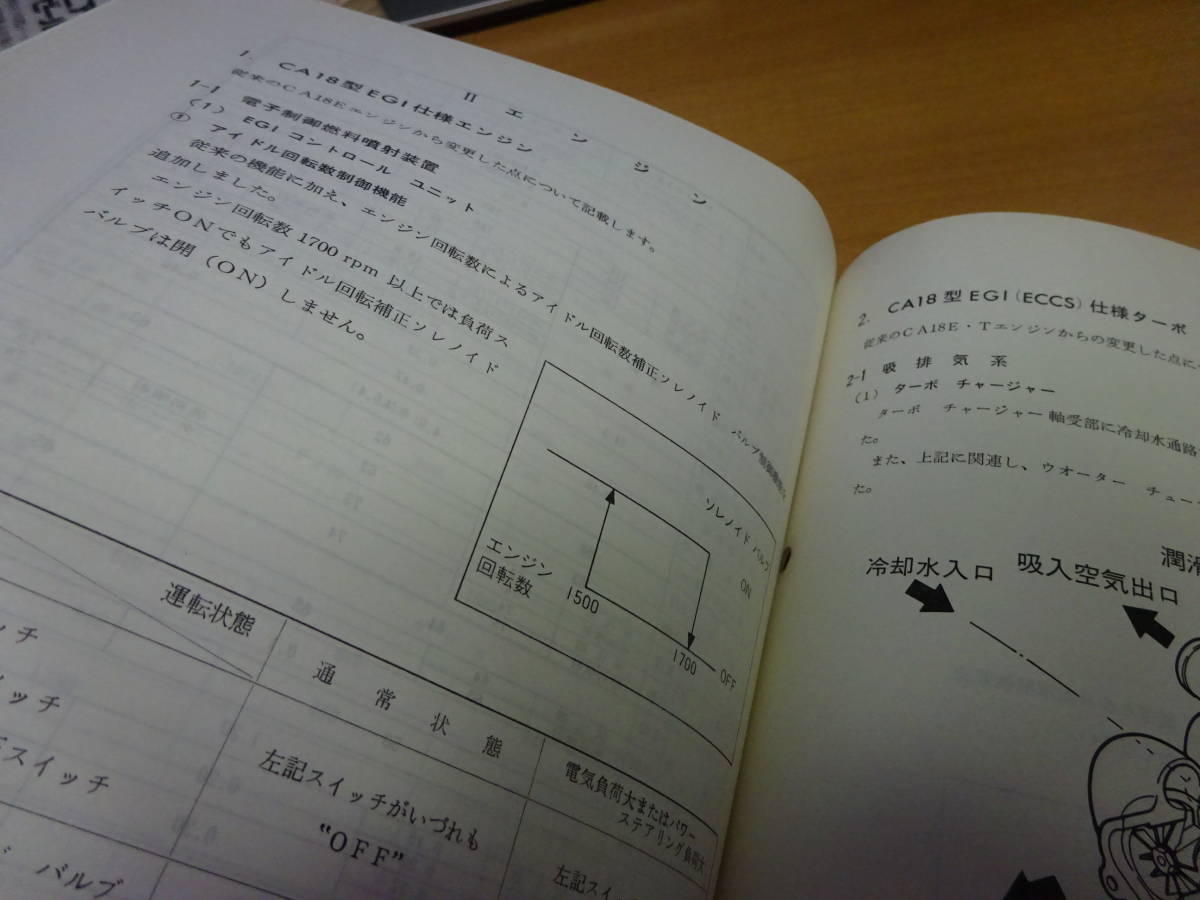 II エンジン
1. CA18型EGI仕様エンジン
従来のCA18Eエンジンから変更した点について記載します。
1-1 電子制御燃料噴射装置
(1) EGI コントロール ユニット
① アイドル回転数制御機能
従来の機能に加え、エンジン回転数によるアイドル回転数補正ソレノイド バルブ制御機能を
追加しました。
エンジン回転数 1700 rpm 以上では負荷ス
イッチONでもアイドル回転補正ソレノイド
バルブは開(ON)しません。
ソレノイド バルブ
ON
エンジン
回転数
1500
1700
OFF
運転状態
通常状態
電気負荷大またはパワー
ステアリング負荷大
ッチ
イッチ
スイッチ
左記スイッチがいづれも
"OFF"
左記スイ
バルブ
2. CA18型EGI(ECCS)仕様ターボ
従来のCA18E・Tエンジンからの変更した点に
2-1 吸排気系
(1) ターボ チャージャー
ターボ チャージャー軸受部に冷却水通路
た。
また、上記に関連し、ウオーター チュー
た。
冷却水入口
吸入空気出口
潤滑